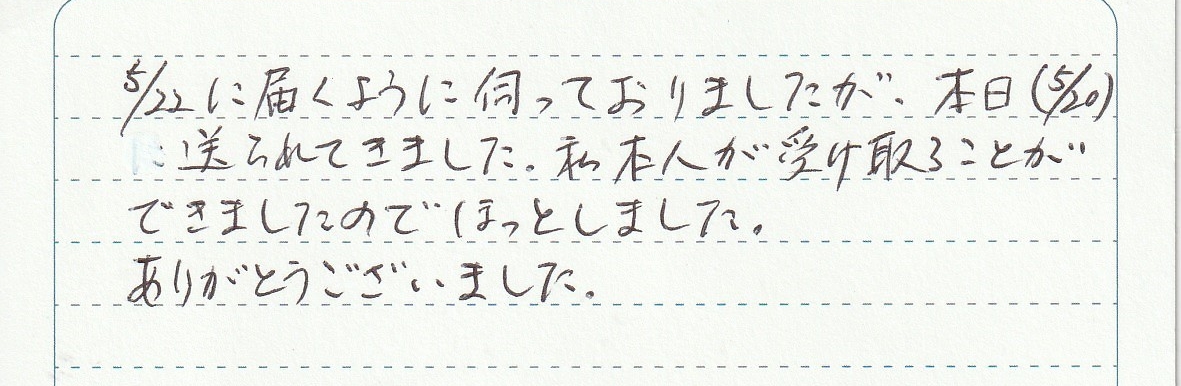 5/22に届くように伺っておりましたが、本日(5/20)
に送られてきました。私本人が受け取ることが
できましたのでほっとしました。
ありがとうございました。